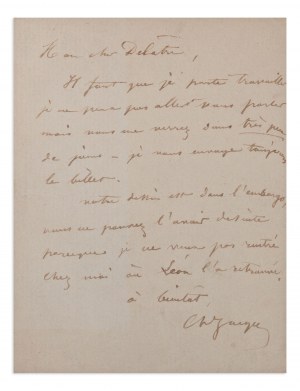 Mon cher Delâtre,
Il faut que je parte travailler
je ne peux pas aller vous parler
mais vous me verrez dans très peu
de jours – je vous envoye toujours
le billet.
notre dessin est dans l'
vous ne pouvez l'avoir de suite
parceque je ne veux pas
chez moi Léon l'a
à bientôt.
Ch Jacque